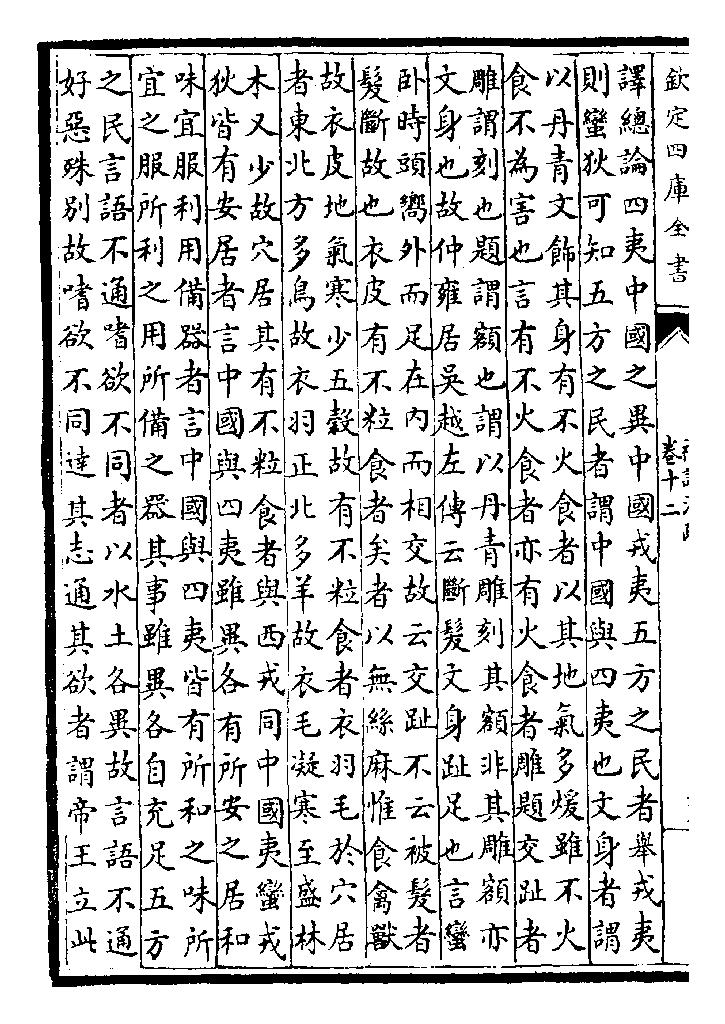 欽定四庫全書
卷十二
譯總論四夷中國之異中國戎夷五方之民者舉戎夷
則蠻狄可知五方之民者謂中國與四夷也文身者謂
以丹青文飾其身有不火食者以其地氣多煖雖不火
食不為害也言有不火食者亦有火食者雕題交趾者
雕謂刻也題謂額也謂以丹青雕刻其額非其雕額亦
文身也故仲雍居吳越左傳云斷髮文身趾足也言蠻
卧時頭嚮外而足在内而相交故云交趾不云被髮者
髮斷故也衣皮有不粒食者矣者以無絲麻惟食禽獸
故衣皮地氣寒少五穀故有不粒食者衣羽毛於穴居
者東北方多鳥故衣羽正北多羊故衣毛凝寒至盛林
木又少故穴居其有不粒食者與西戎同中國夷蠻戎
狄皆有安居者言中國與四夷雖異各有所安之居和
味宜服利用備器者言中國與四夷皆有所和之味所
宜之服所利之用所備之器其事雖異各自充足五方
之民言語不通嗜欲不同者以水土各異故言語不通
好惡殊別故嗜欲不同達其志通其欲者謂帝王立此